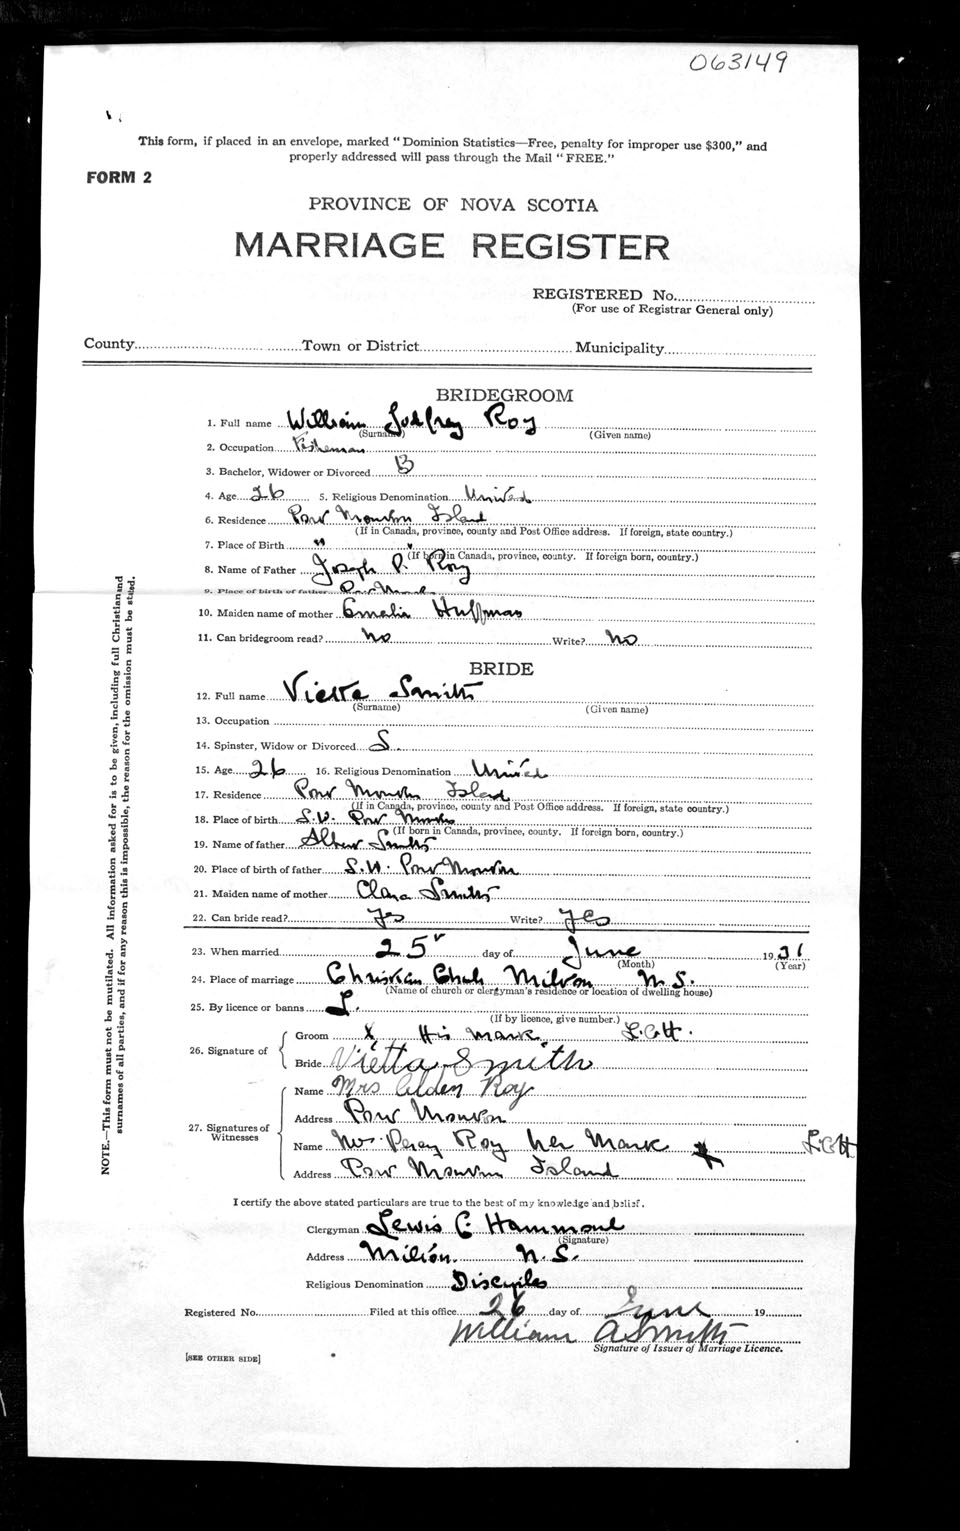 063149
This form, if placed in an envelope, marked "Dominion Statistics—Free, penalty for improper use $300," and
properly addressed will pass through the Mail "FREE."
FORM 2
PROVINCE OF NOVA SCOTIA
MARRIAGE REGISTER
REGISTERED No.
(For use of Registrar General only)
County Town or District Municipality
BRIDEGROOM
1. Full name William Godfrey Roy
(Surname) (Given name)
2. Occupation Fisherman
3. Bachelor, Widower or Divorced B
4. Age 26 5. Religious Denomination United
6. Residence Port Mouton Island
(If in Canada, province, county and Post Office address. If foreign, state country.)
7. Place of Birth " "
(If born in Canada, province, county. If foreign born, country.)
8. Name of Father Joseph P. Roy
9. Place of birth of father Port Mouton
10. Maiden name of mother Emelia Huffman
11. Can bridegroom read? No Write? No
BRIDE
12. Full name Vietta Smith
(Surname) (Given name)
13. Occupation
14. Spinster, Widow or Divorced S
15. Age 26 16. Religious Denomination United
17. Residence Port Mouton Island
(If in Canada, province, county and Post Office address. If foreign, state country.)
18. Place of birth S.W. Port Mouton
(If born in Canada, province, county. If foreign born, country.)
19. Name of father Albert Smith
20. Place of birth of father S.W. Port Mouton
21. Maiden name of mother Clara Smith
22. Can bride read? Yes Write? Yes
23. When married 25 day of June 1931
(Month) (Year)
24. Place of marriage Christian Church Milton N.S.
(Name of church or clergyman's residence or location of dwelling house)
25. By licence or banns L.
(If by licence, give number.)
26. Signature of
Groom X His Mark L.C.H.
Bride Vietta Smith
27. Signatures of Witnesses
Name Mrs Alden Roy
Address Port Mouton
Name Mrs. Percy Roy her Mark X L.C.H
Address Port Mouton Island
I certify the above stated particulars are true to the best of my knowledge and belief.
Clergyman Lewis C. Hammond
(Signature)
Address Milton. N.S.
Religious Denomination Disciples
Registered No. Filed at this office 26 day of June 19
William A Smith
Signature of Issuer of Marriage Licence.
[SEE OTHER SIDE]
NOTE.—This form must not be mutilated. All information asked for is to be given, including full Christian and
surnames of all parties, and if for any reason this is impossible, the reason for the omission must be stated.